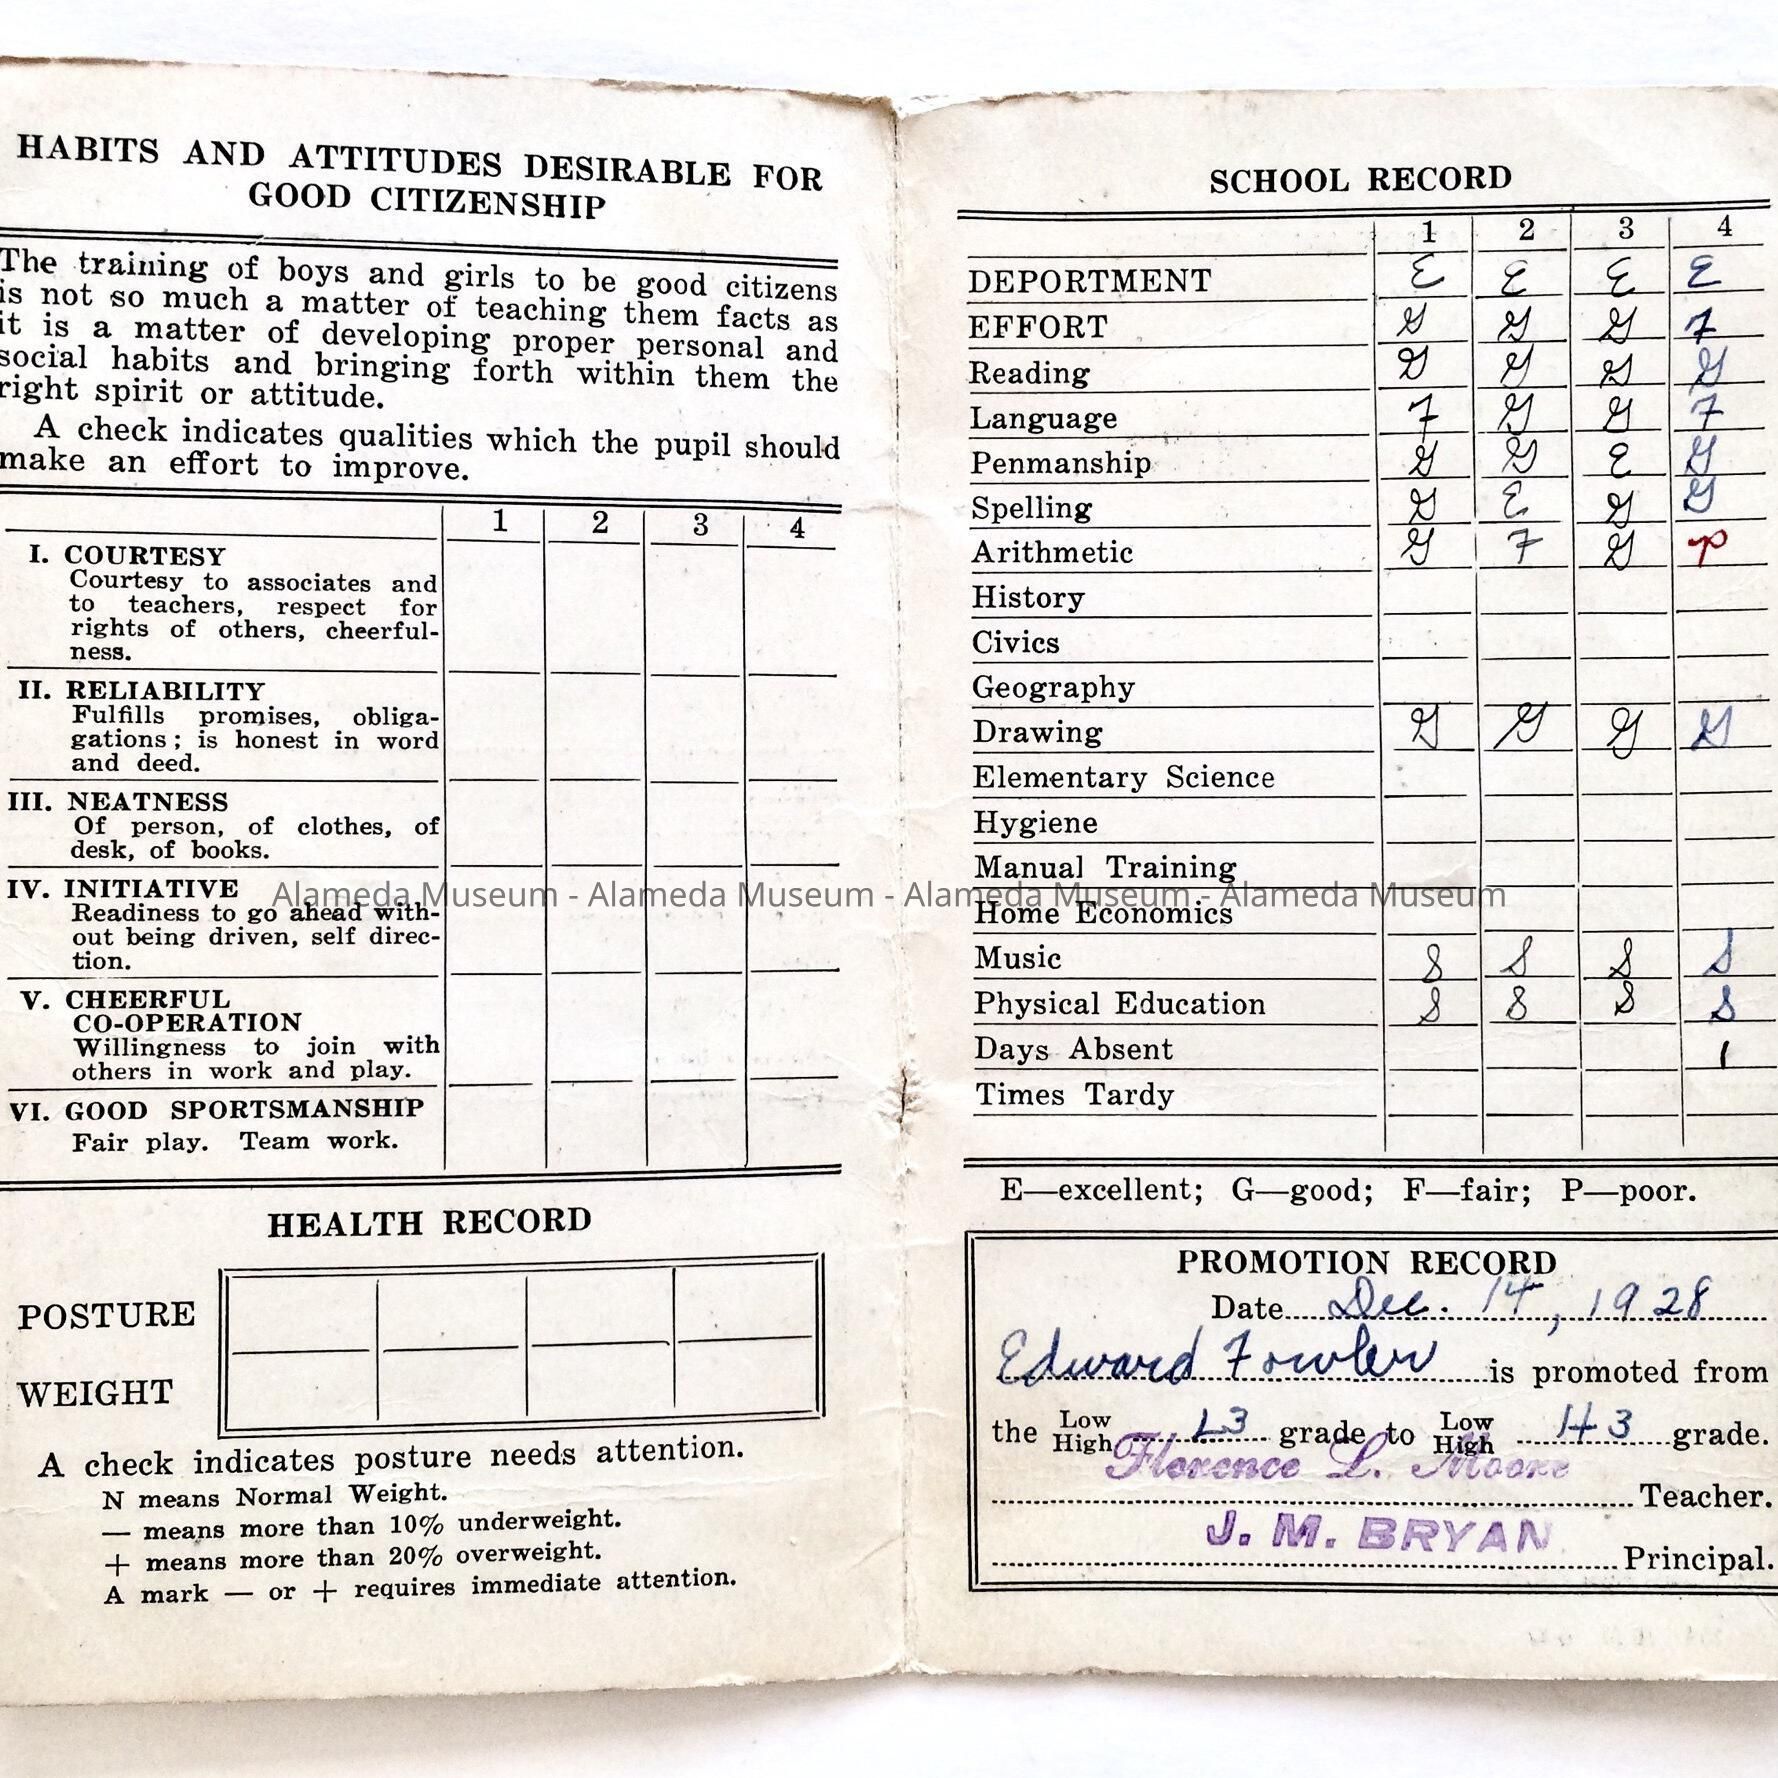 HABITS AND ATTITUDES DESIRABLE FOR
GOOD CITIZENSHIP
The training of boys and girls to be good citizens
is not so much a matter of teaching them facts as
it is a matter of developing proper personal and
social habits and bringing forth within them the
right spirit or attitude.
A check indicates qualities which the pupil should
make an effort to improve.
1 2 3 4
I. COURTESY
Courtesy to associates and
to teachers, respect for
rights of others, cheerful-
ness.
II. RELIABILITY
Fulfills promises, obliga-
gations; is honest in word
and deed.
III. NEATNESS
Of person, of clothes, of
desk, of books.
IV. INITIATIVE
Readiness to go ahead with-
out being driven, self direc-
tion.
V. CHEERFUL
CO-OPERATION
Willingness to join with
others in work and play.
VI. GOOD SPORTSMANSHIP
Fair play. Team work.
HEALTH RECORD
POSTURE
WEIGHT
A check indicates posture needs attention.
N means Normal Weight.
— means more than 10% underweight.
+ means more than 20% overweight.
A mark — or + requires immediate attention.
SCHOOL RECORD
1 2 3 4
DEPORTMENT E E E E
EFFORT G G G F
Reading G G G G
Language F G G F
Penmanship G G E G
Spelling G E G G
Arithmetic G F G P
History
Civics
Geography
Drawing G G G G
Elementary Science
Hygiene
Manual Training
Home Economics
Music S S S S
Physical Education S S S S
Days Absent 1
Times Tardy
E—excellent; G—good; F—fair; P—poor.
PROMOTION RECORD
Date Dec. 14, 1928
Edward Fowler is promoted from
the Low High L3 grade to Low High H3 grade.
Florence L. Moore
Teacher.
J. M. BRYAN
Principal.
Alameda Museum - Alameda Museum - Alameda Museum - Alameda Museum